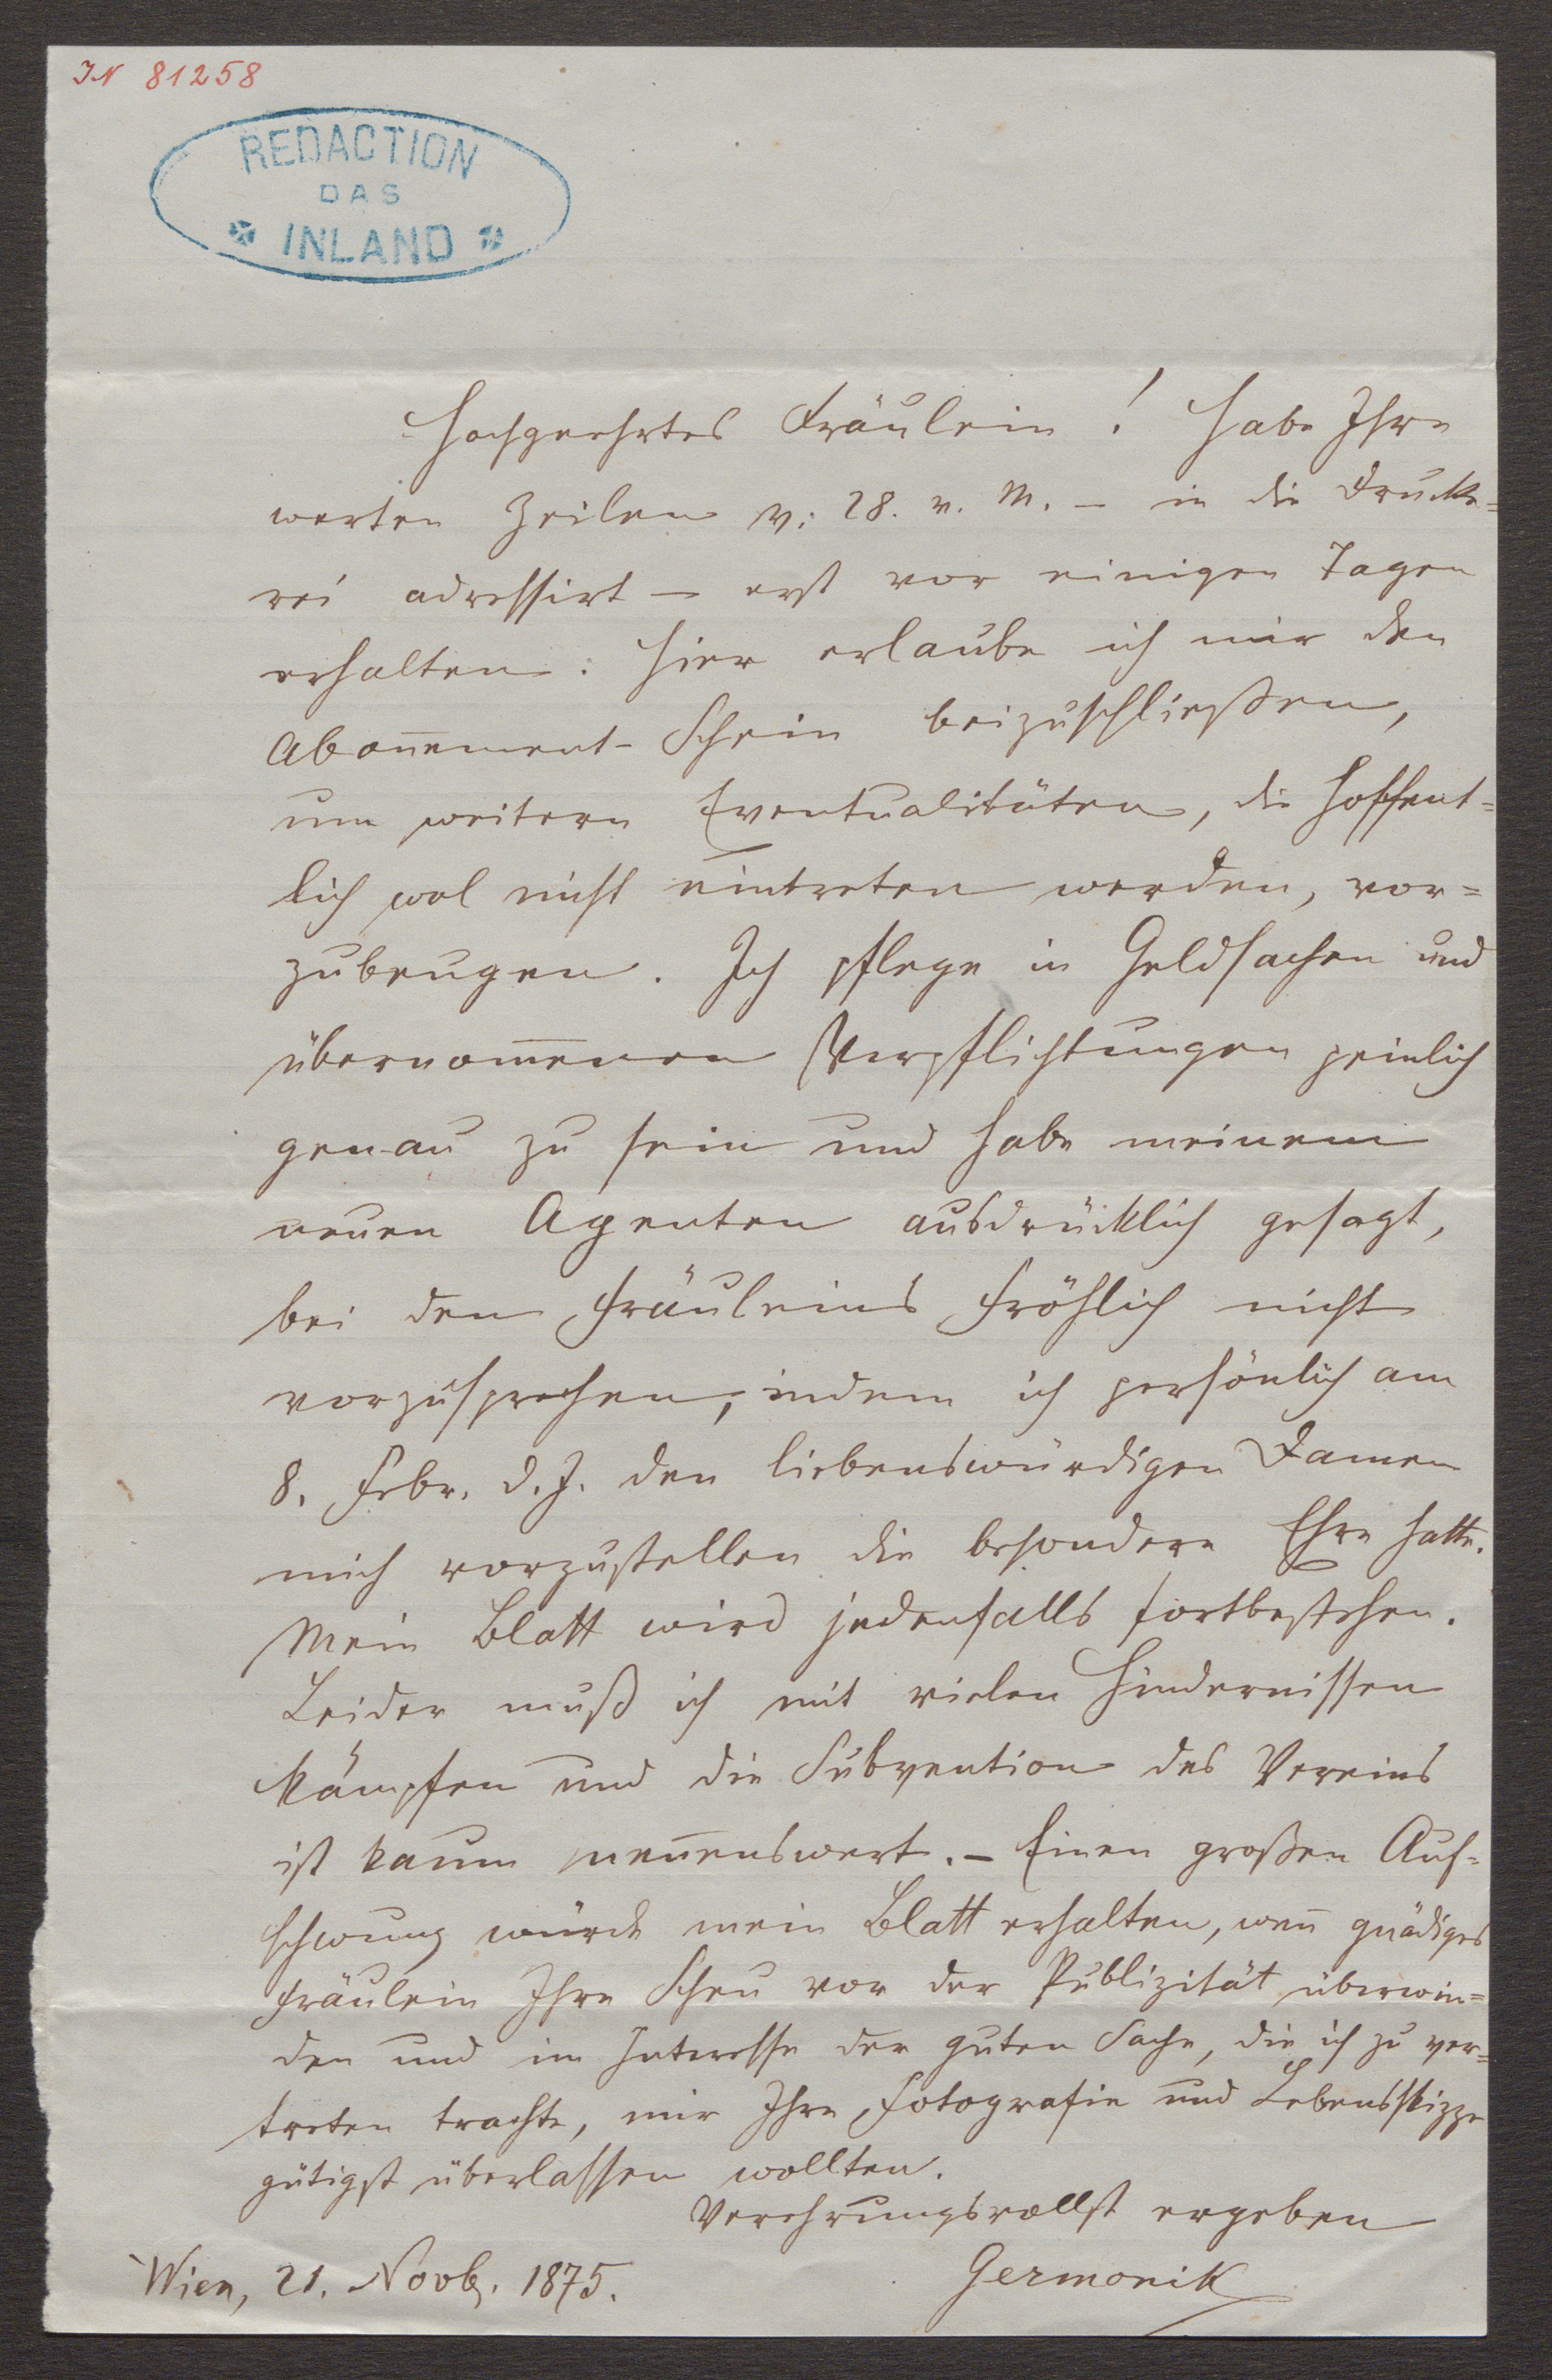 IN 81258
REDACTION
DAS
INLAND
Hochgeehrtes Fräulein! Habe Ihre
werten Zeilen v: 28. v. M. – in die Drucke=
rei adressirt – erst vor einigen Tagen
erhalten. Hier erlaube ich mir den
Abon̄ement-Schein beizuschließen,
um weitern Eventualitäten, die hoffent=
lich wol nicht eintreten werden, vor=
zubeugen. Ich pflege in Geldsachen und
übernom̄enen Verpflichtungen peinlich
genau zu sein und habe meinem
neuen Agenten ausdrücklich gesagt,
bei den Fräuleins Fröhlich nicht
vorzusprechen, indem ich persönlich am
8. Febr. d. J. den liebenswürdigen Damen
mich vorzustellen die besondere Ehre hatte.
Mein Blatt wird jedenfalls fortbestehen.
Leider muß ich mit vielen Hindernissen
kämpfen und die Subvention des Vereins
ist kaum nen̄enswert. – Einen großen Auf=
schwung würde mein Blatt erhalten, wen̄ gnädiges
Fräulein Ihre Scheu vor der Publizität überwin=
den und im Interesse der guten Sache, die ich zu ver=
treten trachte, mir Ihre Fotografie und Lebensskizze
gütigst überlassen wollten.
Verehrungsvollst ergeben
Wien, 21. Novb. 1875. Germonik